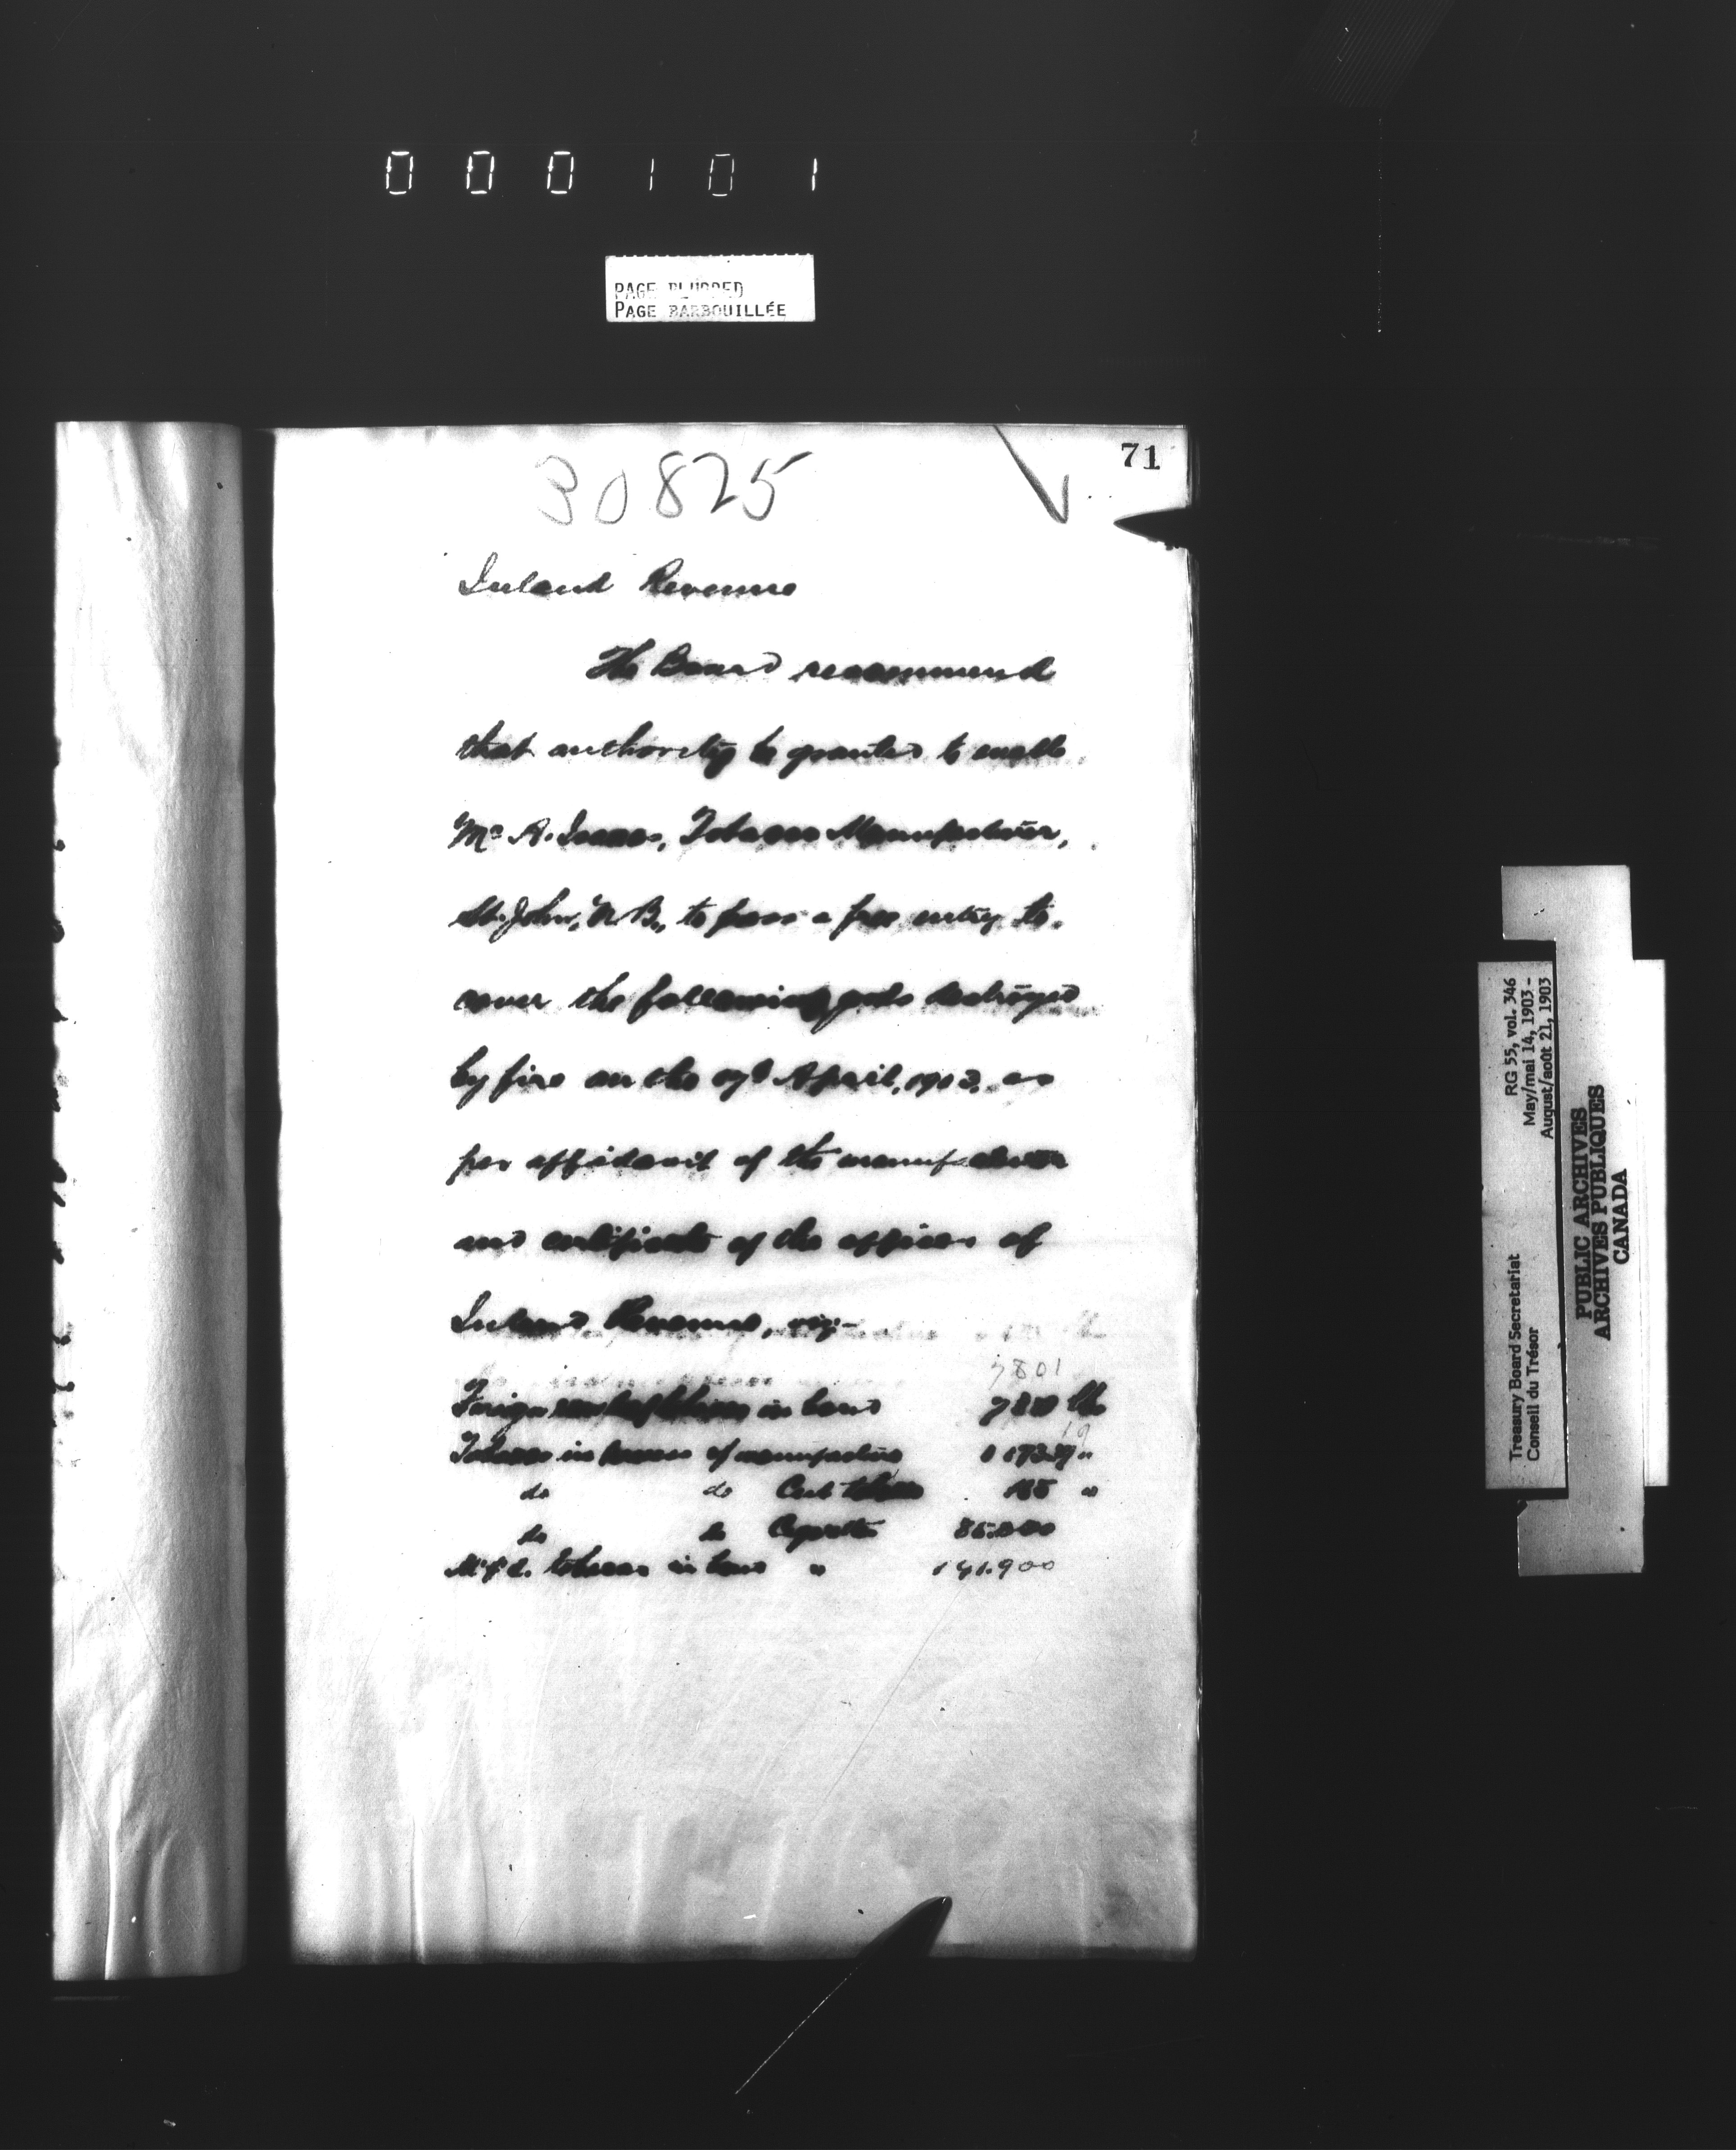 000101
PAGE BLURRED
PAGE BARBOUILLÉE
71
30825
Inland Revenue
The Board recommend
that authority be granted to enable
Mr A. Isaacs, Tobacco Manufacturer,
St. John, N.B., to pass a free entry to
cover the following goods destroyed
by fire on the April, 1903, as
per affidavit of the manufacturer
and certificate of the officer of
Inland Revenue, viz:-
7801
Foreign in bond lbs
Tobacco in process of manufacture "
do do Cut tobacco "
do do Cigarettes
M'f'd. tobacco in bond " 141.900
RG 55, vol. 346
May/mai 14, 1903 -
August/août 21, 1903
Treasury Board Secretariat
Conseil du Trésor
PUBLIC ARCHIVES
ARCHIVES PUBLIQUES
CANADA